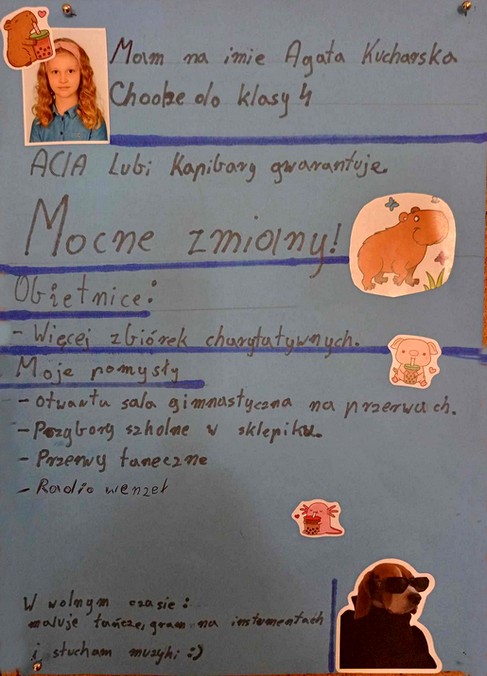 Mam na imie Agata Kucharska
Chodze do klasy 4
AGATA Lubi Kapibary gwarantuje
Mocne zmiany!
Obietnice:
- Więcej zbiórek charytatywnych.
Moje pomysły
- Otwarta sala gimnastyczna na przerwach.
- Przybory szkolne w sklepiku.
- Przerwy taneczne
- Radio wenzeł
W wolnym czasie:
maluje tańcze, gram na instumentach
i słucham muzyki :)